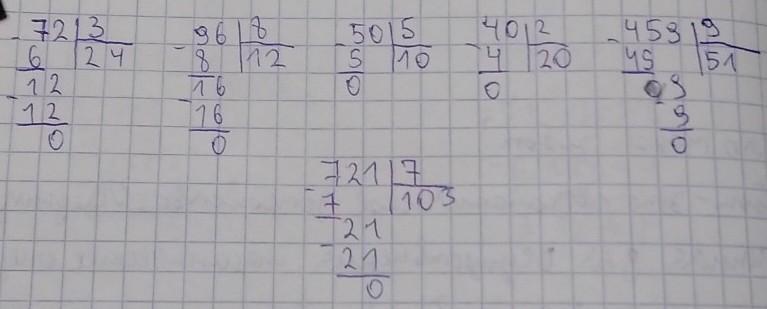 -72|3
6 |24
-12
12
0
-96|8
8 |12
-16
16
0
-50|5
5 |10
0
-40|2
4 |20
0
-459|9
45 |51
-09
9
0
-721|7
7 |103
-21
21
0